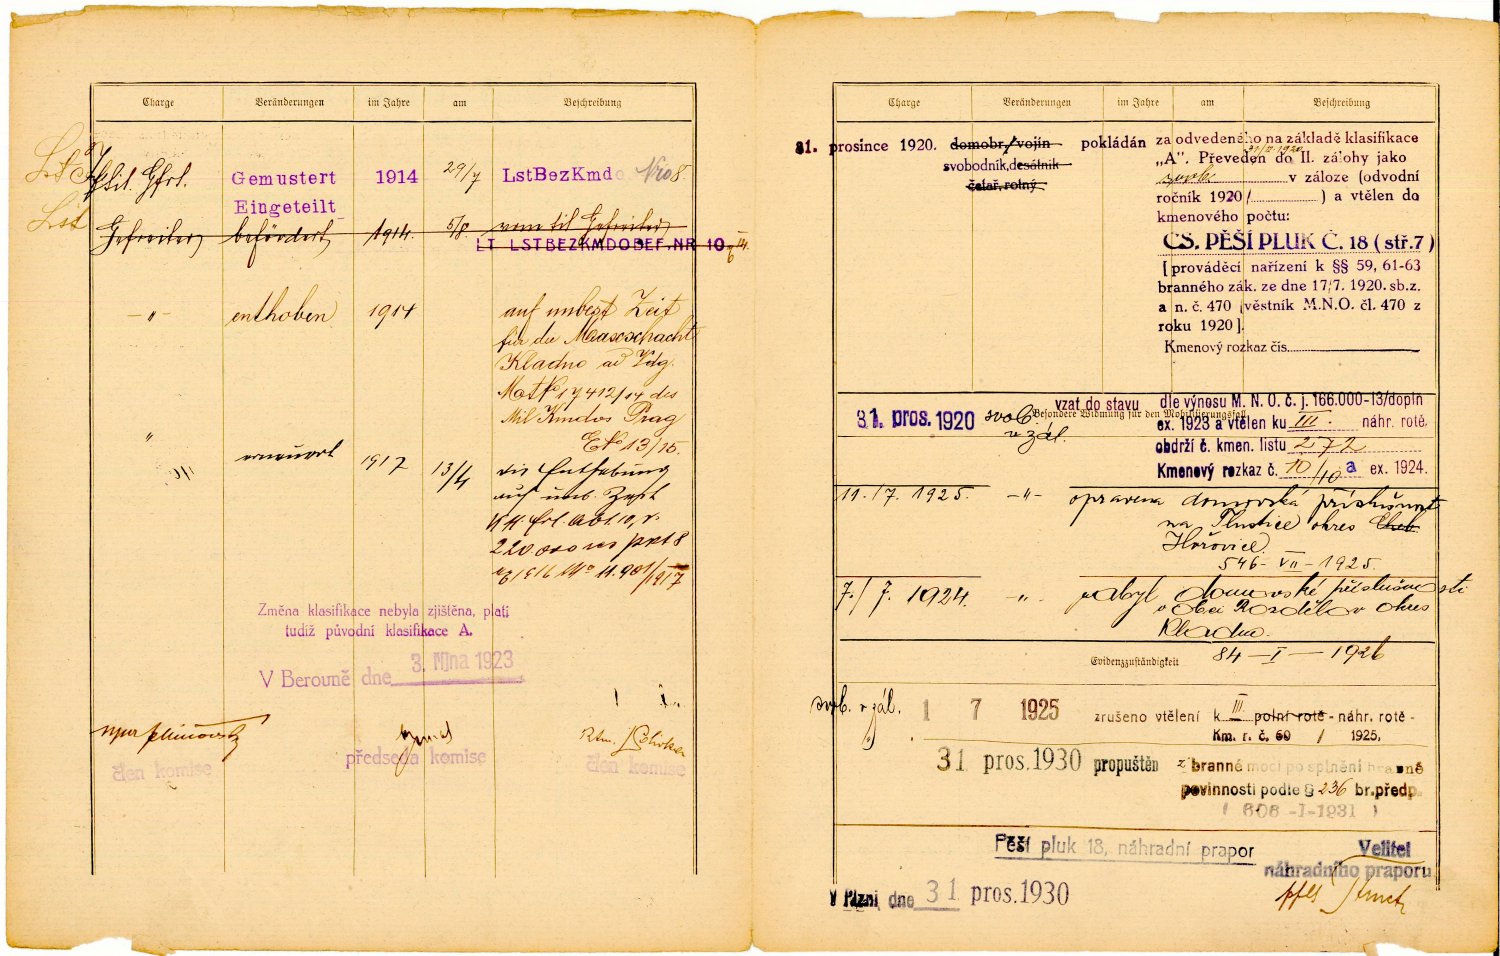 Charge Veränderungen im Jahre am Beschreibung
Lst
Gemustert 1914 29/7 LstBezKmdo Nro 8
Eingeteilt
Lst
Gefreiter befördert 1914. 5/8 vom tit Gefreiter
LT LSTBEZKMDOBEF. NR 10
-"- enthoben 1914 auf unbest Zeit
für die Mayrauschacht
Kladno
17412/14 des
Mil Kmdos Prag
13/15.
"
1917 13/4 die Enthebung
auf unb. Zeit
Změna klasifikace nebyla zjištěna, platí
tudíž původní klasifikace A.
V Berouně dne 3. října 1923
předseda komise
člen komise člen komise
Charge Veränderungen im Jahre am Beschreibung
31. prosince 1920. domobr./vojín pokládán za odvedeného na základě klasifikace
svobodník, desátník
četař, rotný
„A". Převeden do II. zálohy jako
svob. v záloze (odvodní
ročník 1920/ ) a vtělen do
kmenového počtu:
ČS. PĚŠÍ PLUK Č. 18 (stř. 7)
[prováděcí nařízení k §§ 59, 61-63
branného zák. ze dne 17/7. 1920. sb. z.
a n. č. 470 věstník M.N.O. čl. 470 z
roku 1920].
Kmenový rozkaz čís.
Besondere Widmung für den Mobilisierungsfall
31. pros. 1920 svob. v zál. vzat do stavu dle výnosu M. N. O. č. j. 166.000-13/doplň
ex. 1923 a vtělen ku III. náhr. rotě,
obdrží č. kmen. listu 272
Kmenový rozkaz č. 10/10 a ex. 1924.
11./7. 1925. -"- opravena domovská příslušnost
na okres Cheb
Hořovice
546 - VII - 1925.
7./7. 1924. -"- nabyl domovské příslušnosti
v obci Rozdělov okres
Kladno.
84 - I - 1926
Evidenzzuständigkeit
svob. v zál. 1 7 1925 zrušeno vtělení k III polní rotě - náhr. rotě -
Km. r. č. 60 / 1925.
31 pros. 1930 propuštěn z branné moci po splnění branné
povinnosti podle § 236 br. předp.
( 606 -I-1931 )
Pěší pluk 18, náhradní prapor
Velitel
náhradního praporu
V Plzni, dne 31 pros. 1930